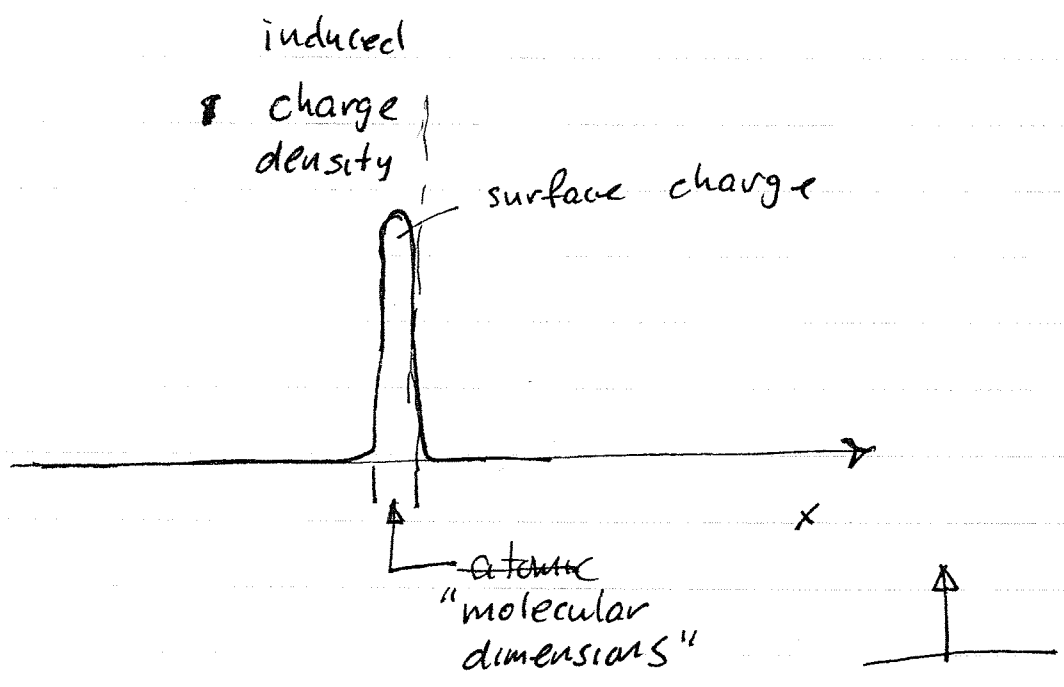 induced
charge
density
surface charge
x
atomic
"molecular
dimensions"